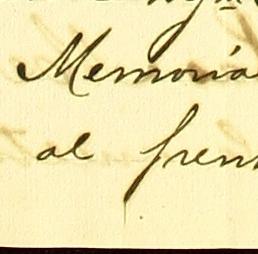 Memoria
al fren